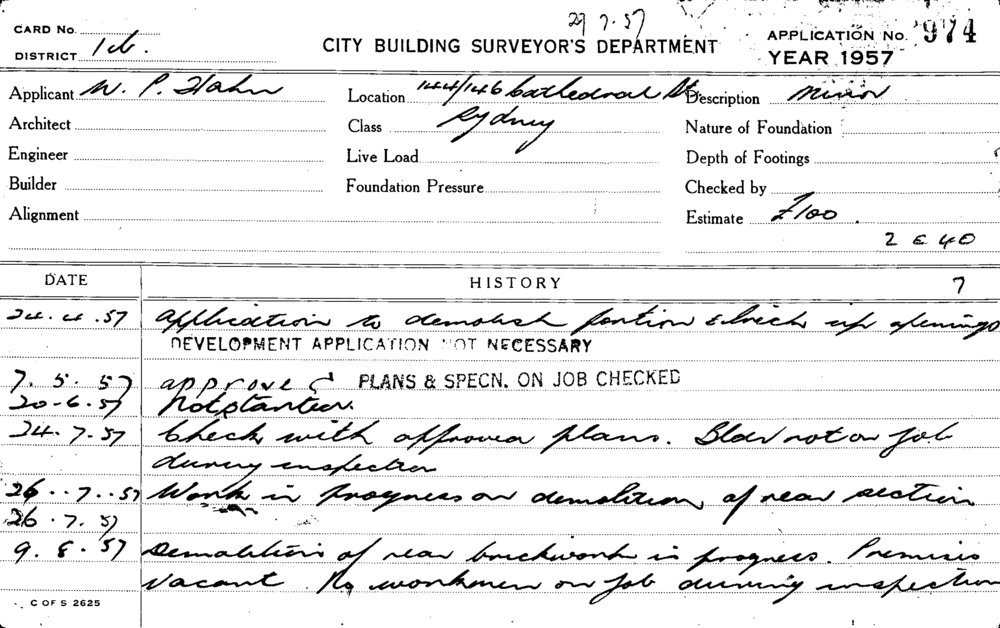 29 7.57
CARD No.
DISTRICT 1b.
CITY BUILDING SURVEYOR'S DEPARTMENT
APPLICATION No. 974
YEAR 1957
Applicant W. P. Hahn Location 144/146 Cathedral St. Description Minor
Architect Class Sydney Nature of Foundation
Engineer Live Load Depth of Footings
Builder Foundation Pressure Checked by
Alignment Estimate £100.
2 E 40
DATE HISTORY 7
24.4.57 Application to demolish portion & brick up openings
DEVELOPMENT APPLICATION NOT NECESSARY
7.5.57 approved PLANS & SPECN. ON JOB CHECKED
20-6.57 Not started.
24.7.57 Check with approved plans. Bldr not on job
during inspection
26..7..57 Work in progress on demolition, of rear section
26.7.57
9.8.57 Demolition of rear brickwork in progress. Premises
Vacant. No workmen on job during inspection
C OF S 2625